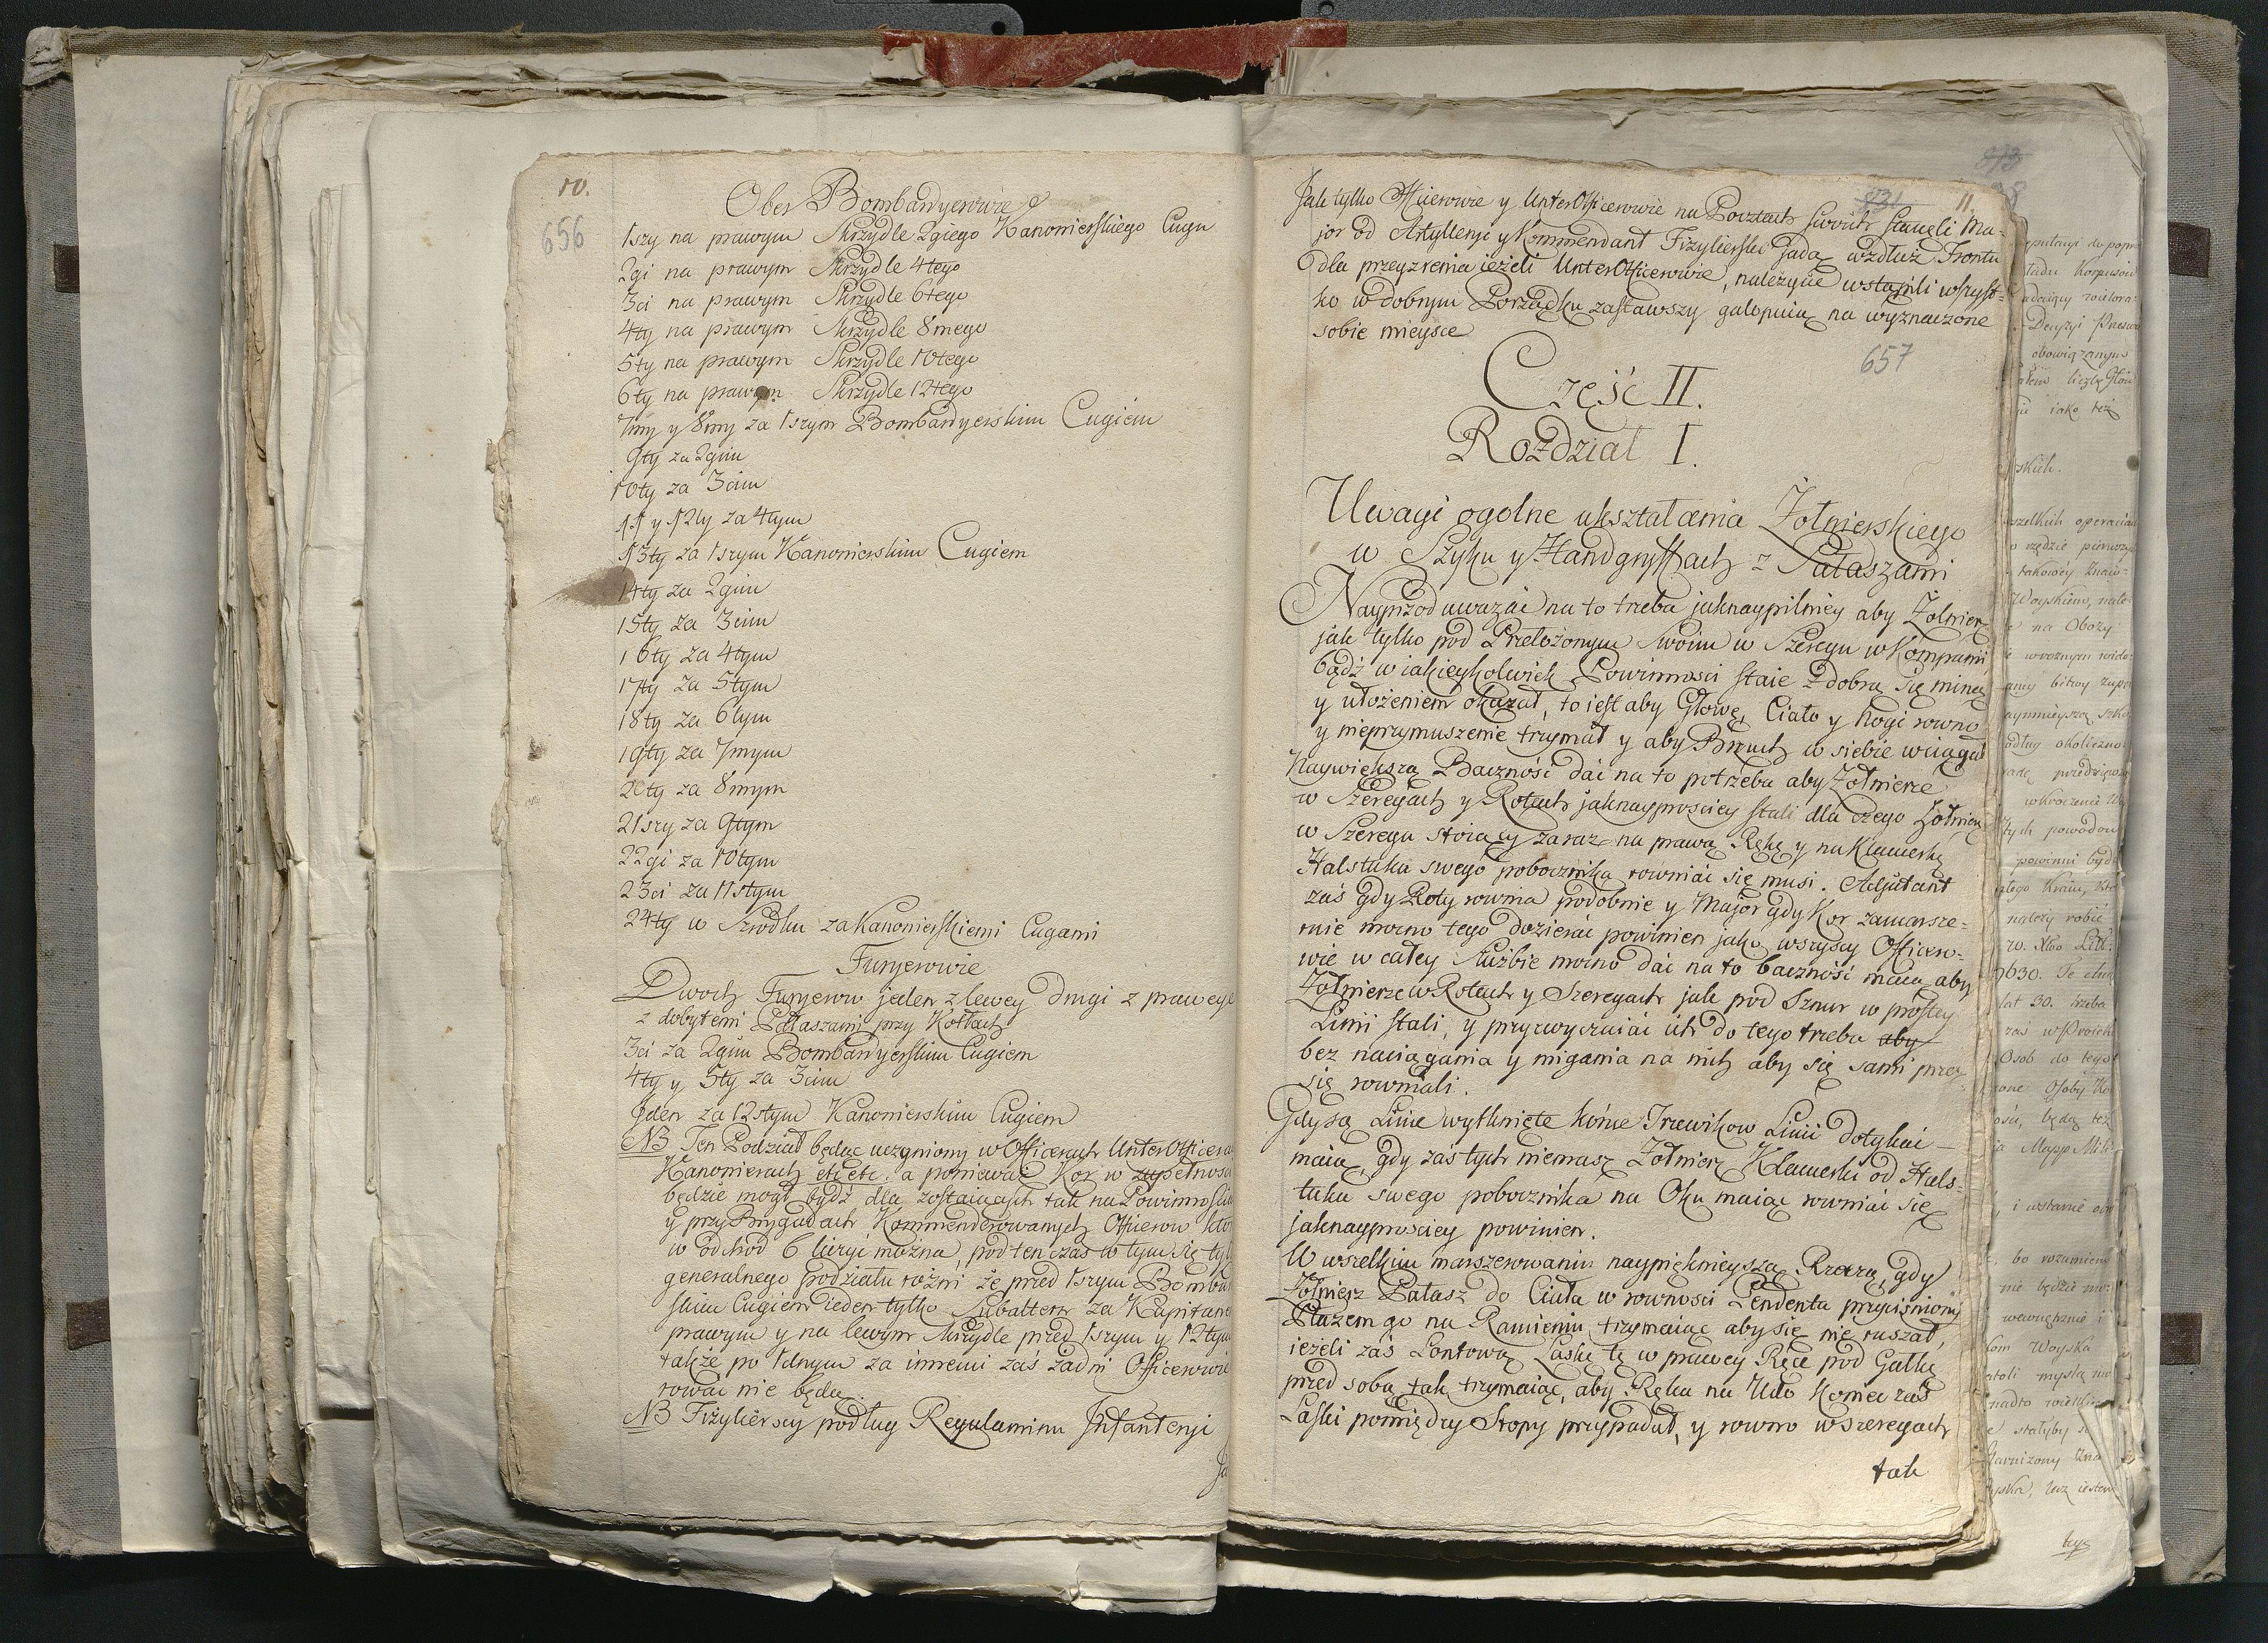 10.
656
Ober Bombardyerowie
1szy na prawym Skrzydle 2giego Kanonierskiego Cugu
2gi na prawym Skrzydle 4tego
3ci na prawym Skrzydle 6tego
4ty na prawym Skrzydle 8mego
5ty na prawym Skrzydle 10tego
6ty na prawym Skrzydle 12tego
7my y 8my za 1szym Bombardyerskim Cugiem
9ty za 2gim
10ty za 3cim
11 y 12ty za 4tym
13ty za 1szym Kanonierskim Cugiem
14ty za 2gim
15ty za 3cim
16ty za 4tym
17ty za 5tym
18ty za 6tym
19ty za 7mym
20ty za 8mym
21szy za 9tym
22gi za 10tym
23ci za 11stym
24ty w Szrodku za Kanonierskiemi Cugami
Furyerowie
Dwoch Furyerow jeden z lewey drugi z prawey
z dobytemi Pałaszami przy Kotłach
3ci za 2gim Bombardyerskim Cugiem
4ty y 5ty za 3cim
Jden za 12stym Kanonierskim Cugiem
NB Ten Podział będąc uczyniony w Officerach UnterOfficera
Kanonierach etc etc: a ponieważ Kor w zupełności
będzie mogł bydź dla zostaiących tak na Powinności
y przy Brygadach Kommenderowanych Officerow
w odchod 6 liczyć można, podten czas w tym się
generalnego podziału rożni że przed 1szym Bombar
skim Cugiem ieden tylko Subaltern za Kapitane
prawym y na lewym Skrzydle przed 1szym y 12tym
także po 1dnym za innemi zaś żadni Officerowie
rować nie będą.
NB Fizylierscy podług Regulaminu Infanteryi
Ja
11.
657
Jak tylko Officerowie y UnterOfficerowie na Pocztach swoich stanęli Ma-
jor od Artylleryi y Kommendant Fizylierski jadą wzdłuż Frontu
dla przeyzrenia ieżeli UnterOfficerowie, należycie wstąpili wszyst-
ko w dobrym Porządku zastawszy galopuią na wyznaczone
sobie mieysce
Część II.
Rozdział I.
Uwagi ogolne ukształcenia Żołnierskiego
w Szyku y Handgryffach z Pałaszami
Nayprzod uważać na to trzeba jaknaypilniey aby Żołnierz
jak tylko pod Przełożonym swoim w Szeregu w Kompanii,
bądź w iakieykolwiek Powinności staie z dobrą się miną
y ułożeniem okazał, to iest aby Głowę, Ciało y nogi rowno
y nieprzymuszenie trzymał y aby Brzuch w siebie wciągał
Naywiększą Baczność dać na to potrzeba aby Żołnierze
w Szeregach y Rotach jaknayprościey stali dla czego Żołnierz
w Szeregu stoiący zaraz na prawą Rękę y na Klamerkę
Halstuka swego pobocznika rowniać się musi. Adjutant
zaś gdy Roty rownia podobnie y Major gdy Kor zamarsze-
ruie mocno tego dozierać powinien jako wszyscy Officero-
wie w całey Służbie mocno dać na to baczność maią aby
Żołnierze w Rotach y Szeregach jak pod Sznur w prostey
Linii stali, y przyzwyczaiać ich do tego trzeba aby
bez naciągania y migania na nich aby się sami przez
się rowniali.
Gdy są Linie wytknięte końce Trzewikow Linii dotykać
maią, gdy zaś tych niemasz Żołnierz Klamerki od Hals-
tuka swego pobocznika na Oku maiąc rowniać się
jaknayprościey powinien.
W wszelkim marszerowaniu naypięknieyszą Rzeczą, gdy
Żołnierz Pałasz do Ciała w rowności Pendenta przyciśniony
Płazem go na Ramieniu trzymaiąc aby się nie ruszał,
ieżeli zaś Lontową Laskę tę w prawey Ręce pod Gałkę
przed sobą tak trzymaiąc, aby Ręka na Udo Koniec zaś
Laski pomiędzy Stopy przypadał, y rowno w Szeregach
tak